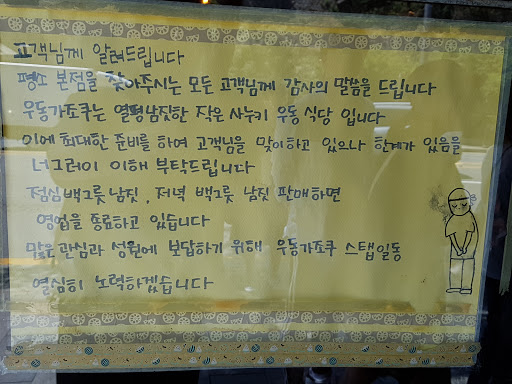 고객님께 알려드립니다
평소 본점을 찾아주시는 모든 고객님께 감사의 말씀을 드립니다
우동가조쿠는 열평남짓한 작은 사누키 우동 식당 입니다
이에 최대한 준비를 하여 고객님을 맞이하고 있으나 한계가 있음을
너그러이 이해 부탁드립니다
점심 백그릇 남짓, 저녁 백그릇 남짓 판매하면
영업을 종료하고 있습니다
많은 관심과 성원에 보답하기 위해 우동가조쿠 스탭일동
열심히 노력하겠습니다